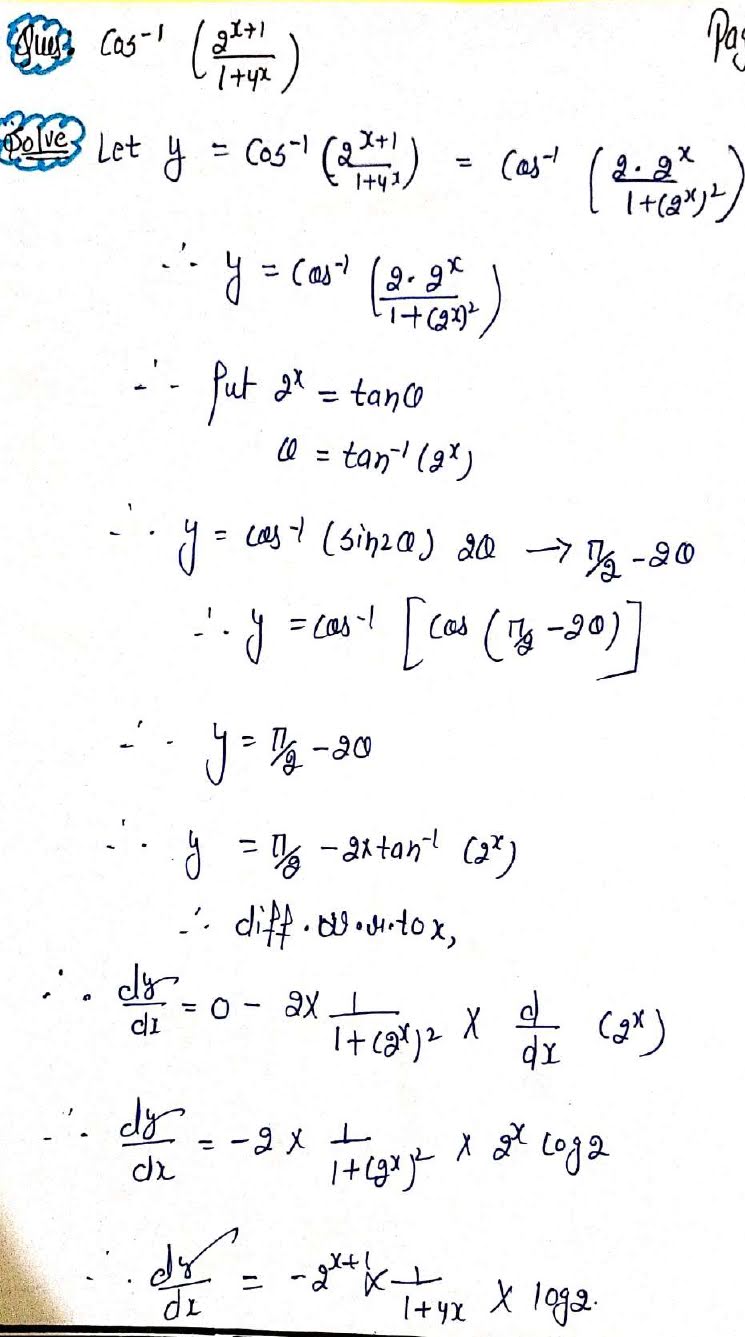 Ques. Cos⁻¹ (2^(x+1)/(1+4^x))
Pag
Solve Let y = Cos⁻¹ (2^(x+1)/(1+4^x)) = Cos⁻¹ (2·2^x/(1+(2^x)²))
∴ y = Cos⁻¹ (2·2^x/(1+(2^x)²))
∴ Put 2^x = tanθ
θ = tan⁻¹(2^x)
∴ y = cos⁻¹ (sin2θ) 2θ → π/2 - 2θ
∴ y = cos⁻¹ [cos (π/2 - 2θ)]
∴ y = π/2 - 2θ
∴ y = π/2 - 2×tan⁻¹ (2^x)
∴ diff. w.r.to x,
∴ dy/dx = 0 - 2× 1/(1+(2^x)²) × d/dx (2^x)
∴ dy/dx = -2 × 1/(1+(2^x)²) × 2^x log2
∴ dy/dx = -2^(x+1) × 1/(1+4x) × log2.